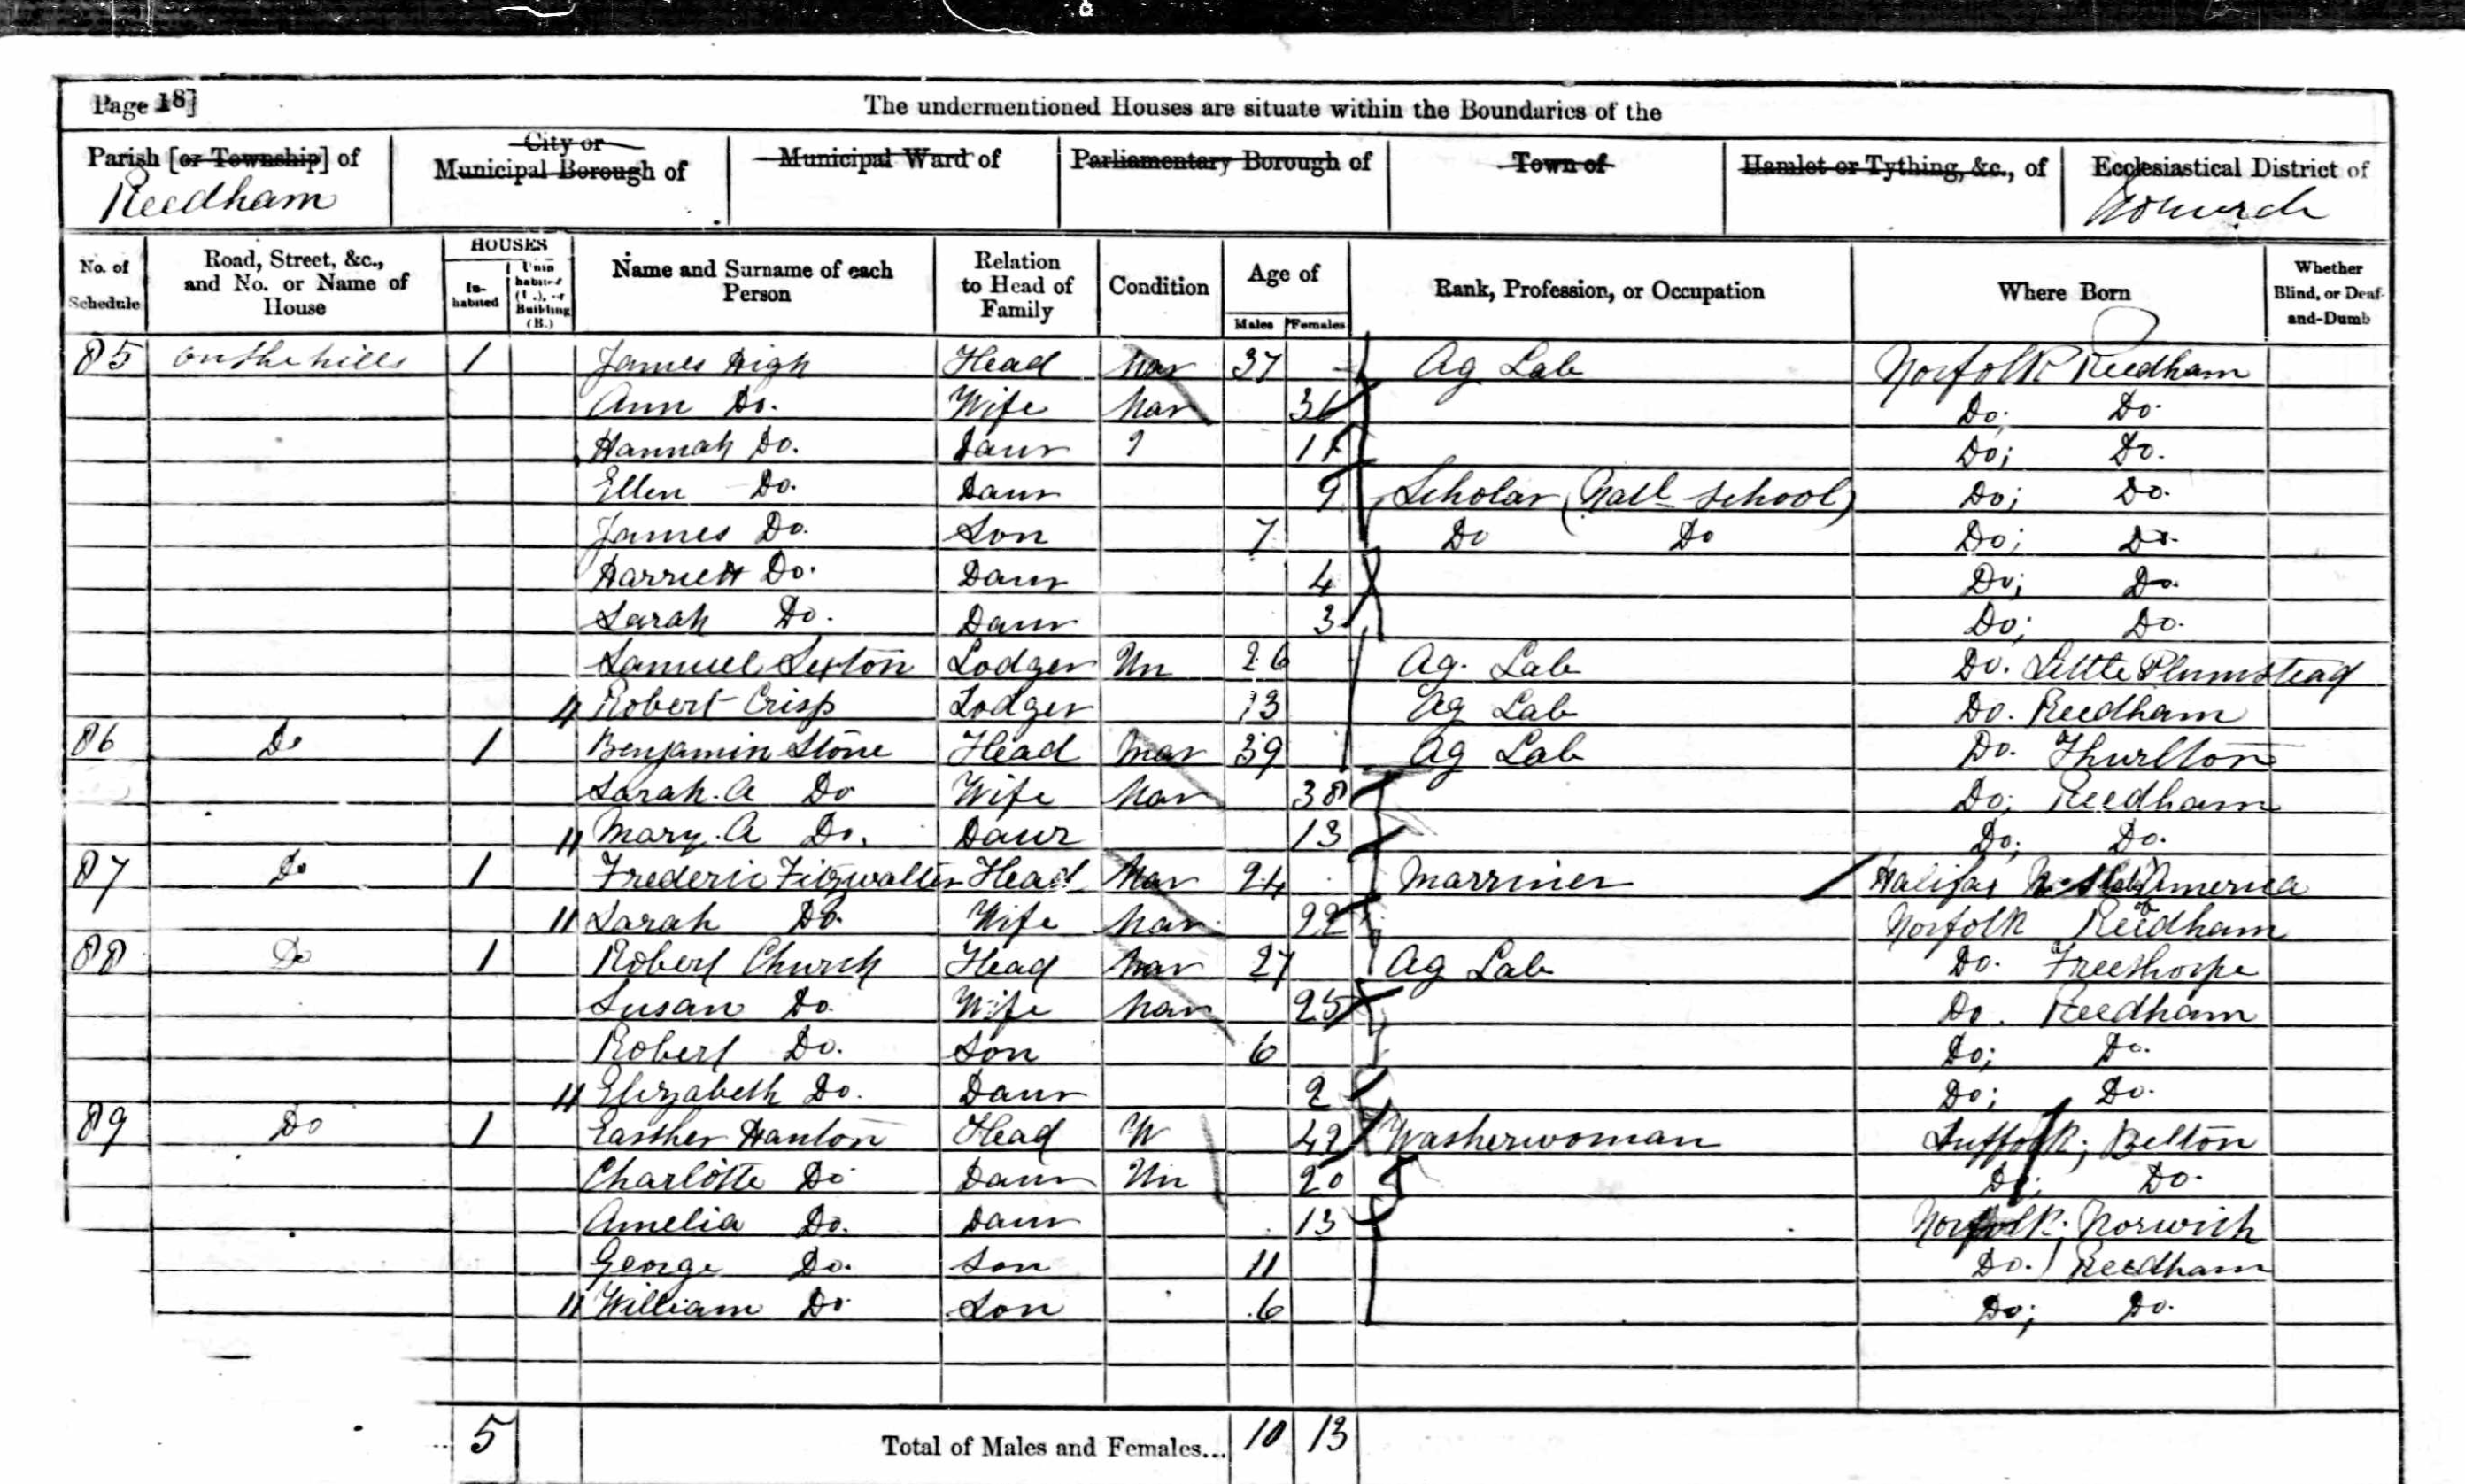 Page 18]
The undermentioned Houses are situate within the Boundaries of the
Parish [or Township] of Reedham
City or Municipal Borough of
Municipal Ward of
Parliamentary Borough of
Town of
Hamlet or Tything, &c., of
Ecclesiastical District of
No. of Schedule
Road, Street, &c., and No. or Name of House
HOUSES
In-habited
Unin habited (U.), or Building (B.)
Name and Surname of each Person
Relation to Head of Family
Condition
Age of
Males Females
Rank, Profession, or Occupation
Where Born
Whether Blind, or Deaf-and-Dumb
85 On the hills 1 James High Head Mar 37 Ag Lab Norfolk Reedham
Ann Do. Wife Mar 36 Do; Do.
Hannah Do. Daur Do; Do.
Ellen Do. Daur 9 Scholar (Natl School) Do; Do.
James Do. Son 7 Do Do Do; Do.
Harriett Do. Daur 4 Do; Do.
Sarah Do. Daur 3 Do; Do.
Samuel Sexton Lodger Un 26 Ag. Lab Do. Little Plumstead
Robert Crisp Lodger 13 Ag Lab Do. Reedham
86 Do 1 Benjamin Stone Head Mar 39 Ag Lab Do. Thurlton
Sarah. A Do Wife Mar 38 Do; Reedham
11 Mary. A Do. Daur 13 Do; Do.
87 Do 1 Frederic Fitzwalter Head Mar 24 Marriner Halifax America
11 Sarah Do. Wife Mar 22 Norfolk Reedham
88 Do 1 Robert Church Head Mar 27 Ag Lab Do. Freethorpe
Susan Do. Wife Mar 25 Do. Reedham
Robert Do. Son 6 Do; Do.
11 Elizabeth Do. Daur 2 Do; Do.
89 Do 1 Easther Hanton Head W 42 Washerwoman Suffolk; Belton
Charlotte Do Daur Un 20 Do; Do.
Amelia Do. Daur 13 Norfolk; Norwich
George Do. Son 11 Do. Reedham
11 William Do Son 6 Do; Do.
5 Total of Males and Females... 10 13